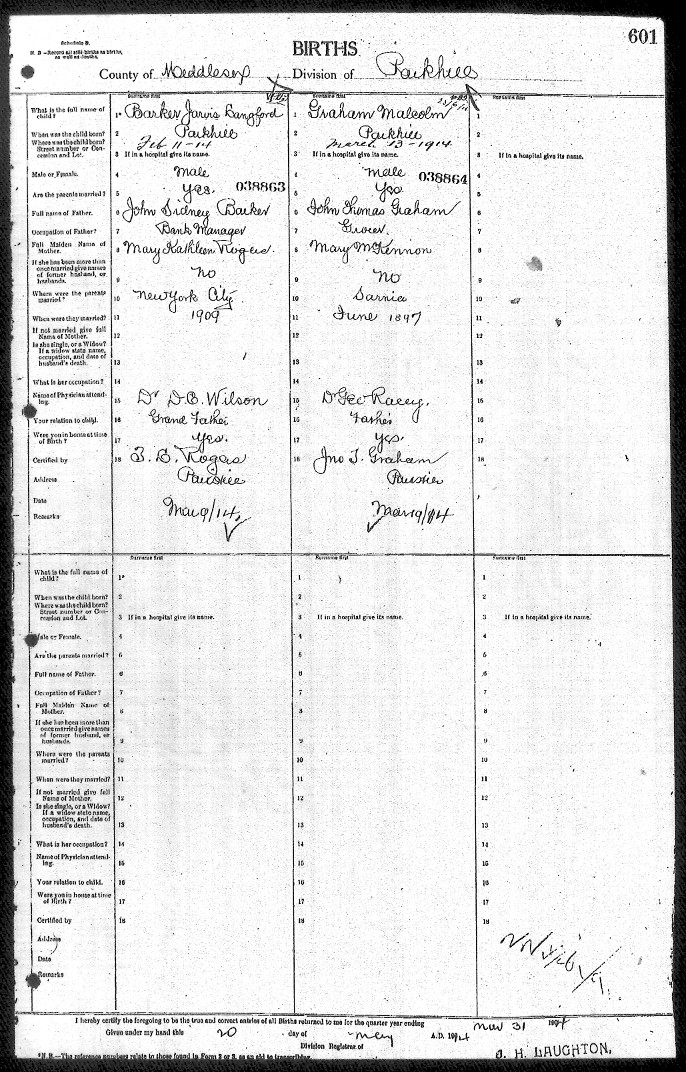 601
Schedule B.
N. B.—Record all still-births as births, as well as deaths.
BIRTHS
County of Middlesex Division of Parkhill
Surname first
Surname first
Surname first
What is the full name of child?
1* Barker Jarvis Langford
1 Graham Malcolm
1
When was the child born?
Where was the child born? Street number or Concession and Lot.
2 Parkhill
Feb 11-14
2 Parkhill
March 13-1914
2
3 If in a hospital give its name.
3 If in a hospital give its name.
3 If in a hospital give its name.
Male or Female.
4 Male
4 Male
4
038863
038864
Are the parents married?
5 yes.
5 Yes
5
Full name of Father.
6 John Sidney Barker
6 John Thomas Graham
6
Occupation of Father?
7 Bank Manager
7 Grocer
7
Full Maiden Name of Mother.
8 Mary Kathleen Rogers
8 Mary McKinnon
8
If she has been more than once married give names of former husband, or husbands.
9 No
9 No
9
Where were the parents married?
10 New York City
10 Sarnia
10
When were they married?
11 1909
11 June 1897
11
If not married give full Name of Mother.
12
12
12
Is she single, or a Widow? If a widow state name, occupation, and date of husband's death.
13
13
13
What is her occupation?
14
14
14
Name of Physician attending.
15 Dr D.C. Wilson
15 Dr Geo Racey.
15
Your relation to child.
16 Grand Father
16 Father
16
Were you in house at time of Birth?
17 yes.
17 yes.
17
Certified by
18 Rogers
18 Jno T. Graham
18
Address
Parkhill
Parkhill
Date
Remarks
Mar 9/14
Mar 19/14
Surname first
Surname first
Surname first
What is the full name of child?
1*
1
1
When was the child born?
Where was the child born? Street number or Concession and Lot.
2
2
2
3 If in a hospital give its name.
3 If in a hospital give its name.
3 If in a hospital give its name.
Male or Female.
4
4
4
Are the parents married?
5
5
5
Full name of Father.
6
6
6
Occupation of Father?
7
7
7
Full Maiden Name of Mother.
8
8
8
If she has been more than once married give names of former husband, or husbands.
9
9
9
Where were the parents married?
10
10
10
When were they married?
11
11
11
If not married give full Name of Mother.
12
12
12
Is she single, or a Widow? If a widow state name, occupation, and date of husband's death.
13
13
13
What is her occupation?
14
14
14
Name of Physician attending.
15
15
15
Your relation to child.
16
16
16
Were you in house at time of Birth?
17
17
17
Certified by
18
18
18
Address
Date
Remarks
I hereby certify the foregoing to be the true and correct entries of all Births returned to me for the quarter year ending Mar 31 1914
Given under my hand this 20 day of May A.D. 1914
Division Registrar of
J. H. LAUGHTON,
*N. B.—The reference numbers relate to those found in Form 2 or 3, as an aid to transcribing.